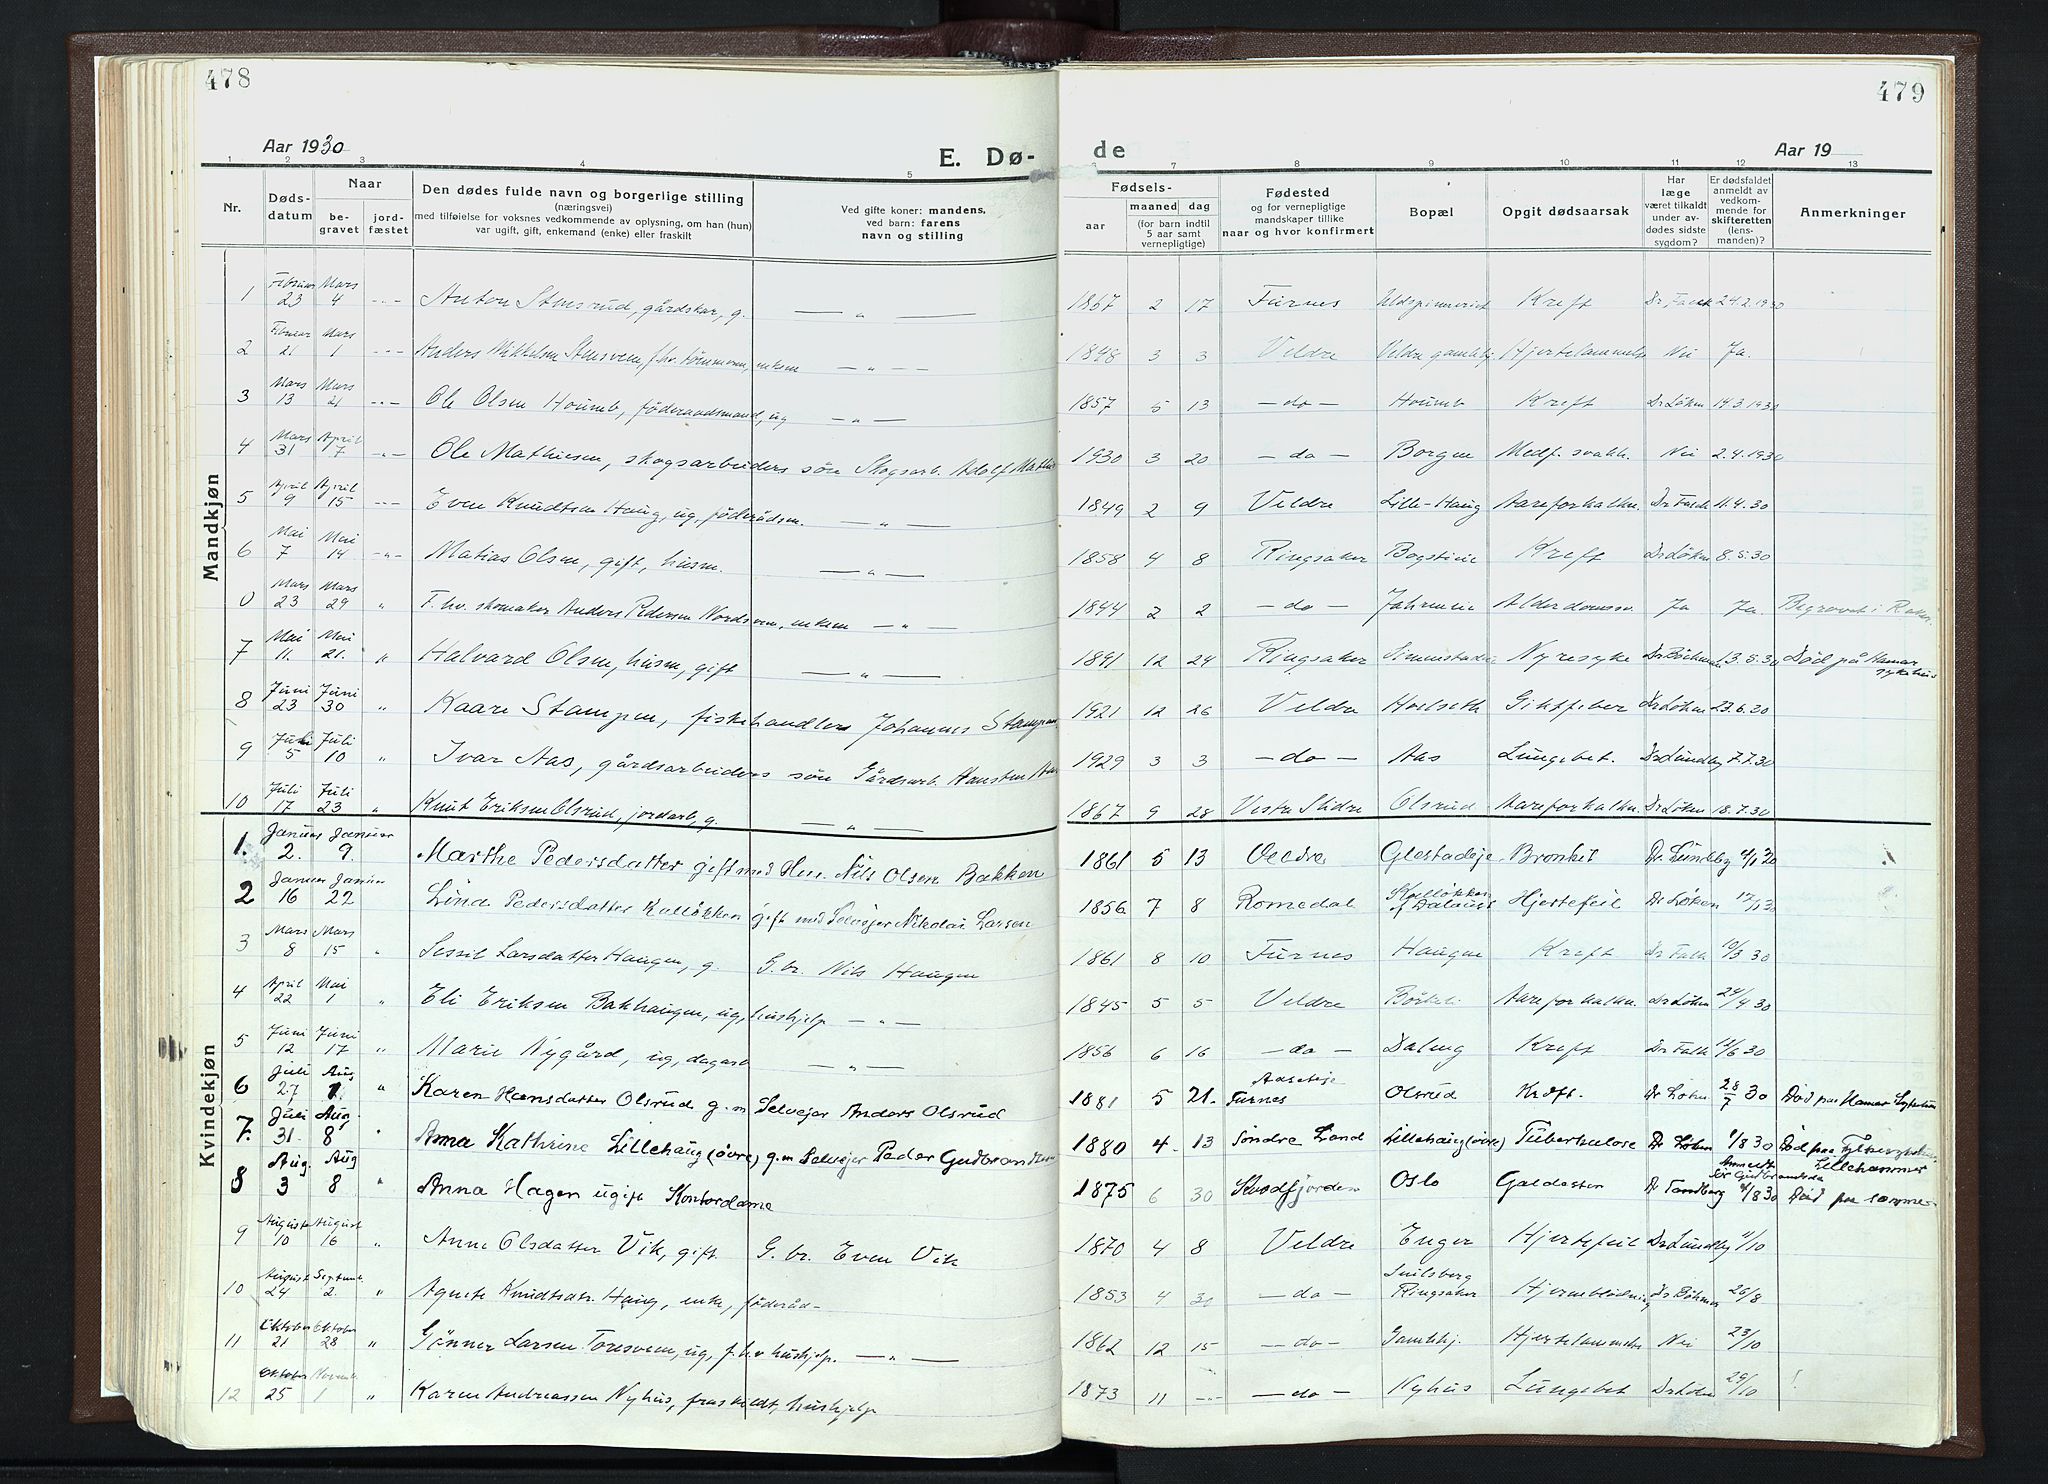 478
479
Aar 1930
E. Dø-
de
Aar 19
1 2 3 4 5 6 7 8 9 10 11 12 13
Nr.
Døds-
datum
Naar
be-
gravet
jord-
fæstet
Den dødes fulde navn og borgerlige stilling
(næringsvei)
med tilføielse for voksnes vedkommende av oplysning, om han (hun)
var ugift, gift, enkemand (enke) eller fraskilt
Ved gifte koner: mandens,
ved barn: farens
navn og stilling
Fødsels-
aar
maaned dag
(for barn indtil
5 aar samt
vernepligtige)
Fødested
og for vernepligtige
mandskaper tillike
naar og hvor konfirmert
Bopæl
Opgit dødsaarsak
Har
læge
været tilkaldt
under av-
dødes sidste
sygdom?
Er dødsfaldet
anmeldt av
vedkom-
mende for
skifteretten
(lens-
manden)?
Anmerkninger
Mandkjøn
1 Februar 23 Mars 4 Anton Stensrud, gårdskar, g. — „ — 1867 2 17 Furnes Kreft Dr Falck 24.2.1930
2 Februar 21 Mars 1 Anders Mikkelsen — „ — 1848 3 3 Veldre Veldre gamlehj. Hjertelammelse Nei Ja.
3 Mars 13 Mars 21 Ole Olsen Houmb, føderaadsmand, ug — „ — 1857 5 13 — do — Houmb Kreft Dr Løken 14.3.1930
4 Mars 31 April 7 „ Ole Mathiesen, skogsarbeiders søn Skogsarb. Adolf 1930 3 20 — do — Borgen Medf. svakh. Nei 2.4.1930
5 April 9 April 15 Even Knudtsen Haug, ug, føderådsm. — „ — 1849 2 9 Veldre Lille-Haug Aareforkalkn. Dr Falck 11.4.30
6 Mai 7 Mai 14 „ Matias Olsen, gift, husm. — „ — 1858 4 8 Ringsaker Kreft Dr Løken 8.5.30
0 Mars 23 Mars 29 „ F. hv. skomaker Anders Pedersen enkem — „ — 1844 2 2 — do — Alderdomssv. Ja Ja.
7 Mai 11. Mai 21. „ Halvard Olsen, husm, gift — „ — 1891 12 24 Ringsaker Nyresyke 13.5.30 Død på Hamar
sykehus
8 Juni 23 Juni 30 „ Kaare Stampen, fiskehandlers Johannes Stampen 1921 12 26 Veldre Holseth Giktfeber Dr Løken 23.6.30
9 Juli 5 Juli 10 „ Ivar Aas, gårdsarbeiders søn Gårdsarb. 1929 3 3 — do — Aas Lungebet. Dr Lundby 7.7.30
10 Juli 17 Juli 23 „ Knut Eriksen Olsrud, jordarb, g. — „ — 1867 9 28 Vestre Slidre Olsrud Aareforkalkn. Dr Løken 18.7.30
Kvindekjøn
1. Januar 2. Januar 9. Marthe Pedersdatter gift med Hr. Nils Olsen Bakken 1861 5 13 Veldre Bronkit Dr. Lundby
2 Januar 16 Januar 22 Pedersdatter Kalløkken gift med Selveier Nikolai Larsen 1856 7 8 Romedal Hjertefeil Dr Løken
3 Mars 8 Mars 15 „ Larsdatter Haugen, g. G.br. Nils Haugen 1861 8 10 Furnes Haugen Kreft Dr Falck 10/3 30
4 April 22 Mai 1 „ Eli Eriksen Bakhaugen, ug, hushjelp — „ — 1845 5 5 Veldre Aareforkalkn. Dr Løken 24/4 30
5 Juni 12 Juni 17 „ Marie Nygård, ug, dagarb — „ — 1856 6 16 — do — Kreft Dr Falck
6 Juli 27 Aug 1. „ Karen Hansdatter Olsrud g. m Selveier Anders Olsrud 1881 5 21. Furnes Olsrud Kreft. Dr Løken 28/7 30 Død paa Hamar Sykehus
7. Juli 31. Aug. 8 Anna Kathrine Lillehaug (øvre) g.m Selveier Peder 1880 4. 13 Søndre Land Lillehaug (øvre) Tuberkulose Dr Løken Død paa Fylkessykehus
Lillehammer
8 Aug. 3 Aug 8 „ Anna Hagen ugift Kontordame 1875 6 30 Oslo Galdesten Dr Sandberg Død paa samme
9 August 10 August 16 „ Anne Olsdatter Vik, gift G.br. Even Vik 1870 4 8 Veldre Enger Hjertefeil Dr Lundby 11/10
10 August 24 Septemb. 2. „ Agnete Knudtsdr. Haug, enke, føderåd- 1853 4 30 — do — Ringsaker Hjerneblødning 26/8
11 Oktober 21 Oktober 28 „ Larsen ug, f.hv hushjelp. — „ — 1862 12 15 — do — Gamlehj. Hjertelammelse Nei 23/10
12 Oktober 25 Novemb. 1 „ Karen Andreassen Nyhus, fraskildt, hushjelp 1873 11 — do — Nyhus Lungebet Dr Løken 29/10